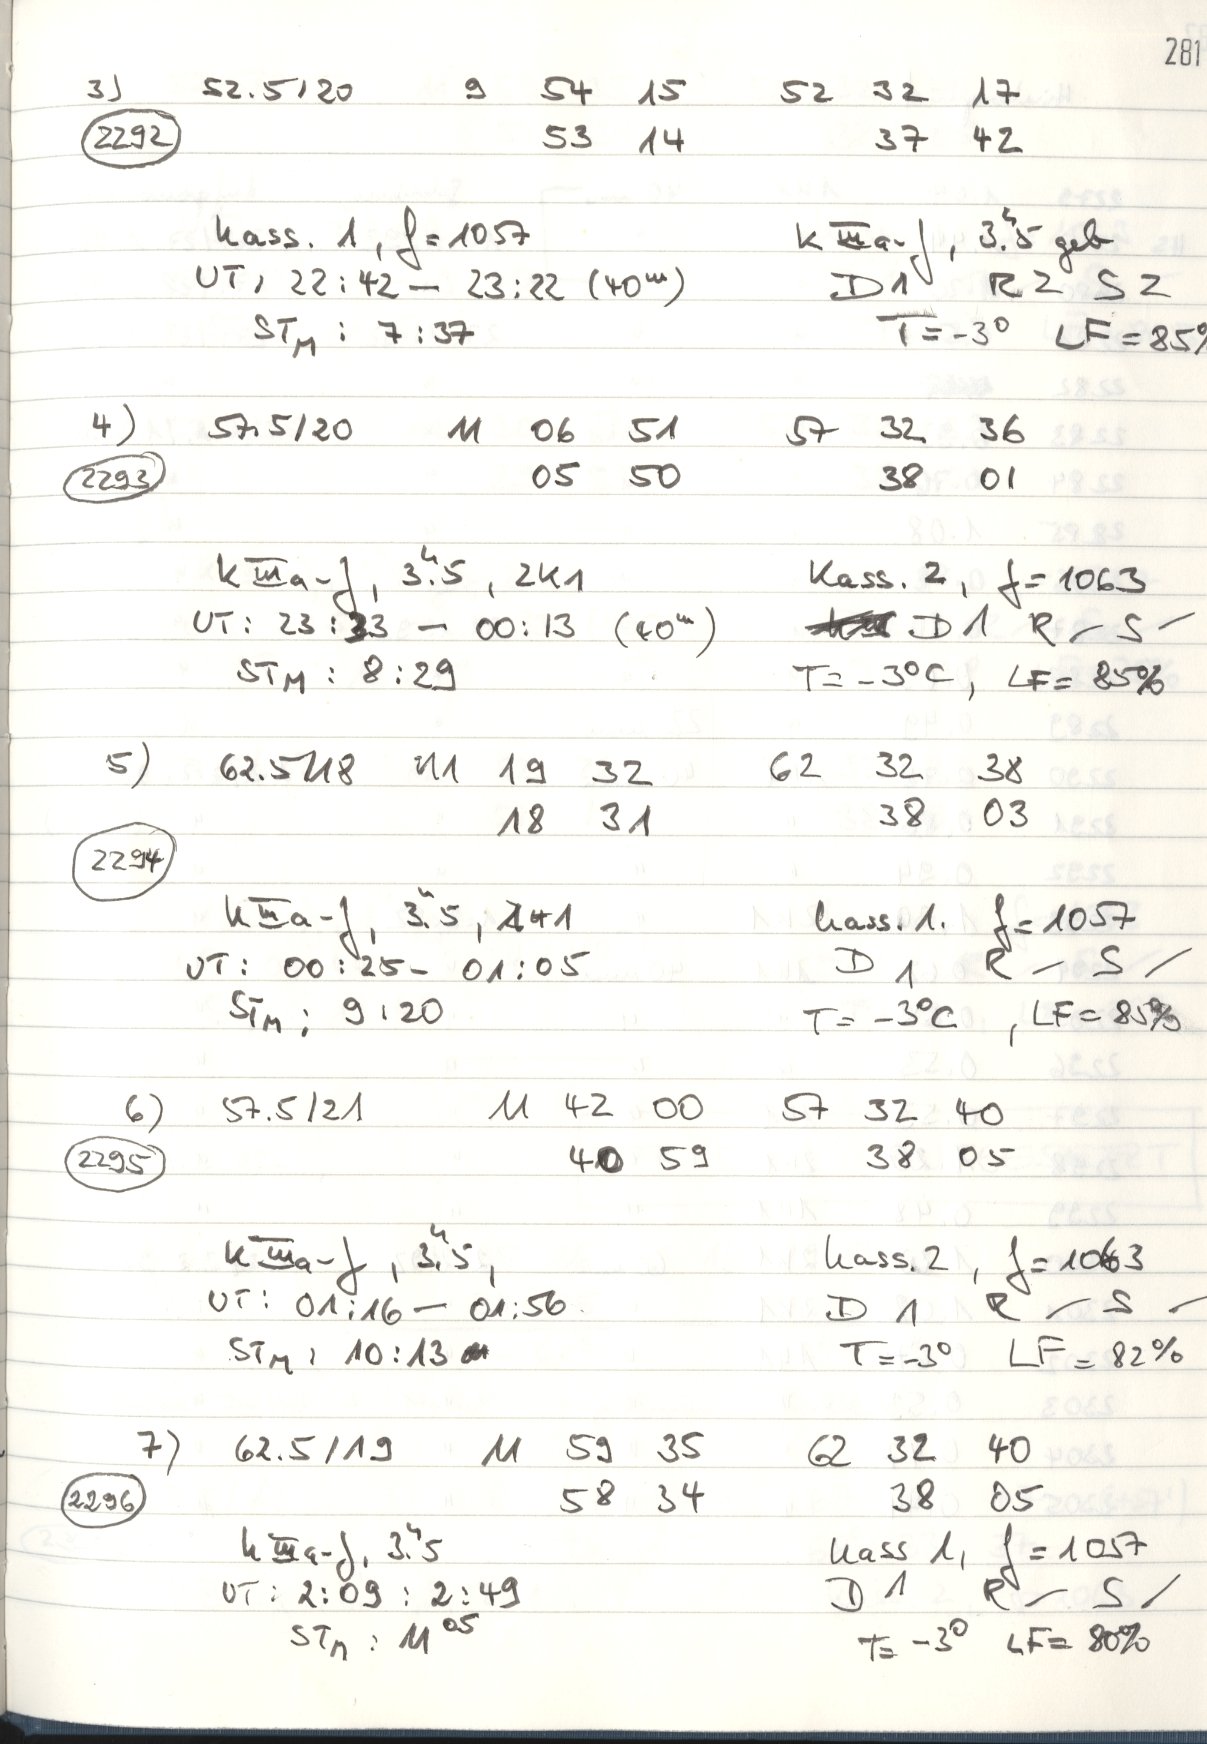 281
3) 52.5/20 9 54 15 52 32 17
2292 53 14 37 42
Kass. 1, f=1057 K IIIa-J, 3.ʰ5 geb
UT: 22:42 — 23:22 (40ᵐ) D1 R2 S2
STM : 7:37 T=-3° LF=85%
4) 57.5/20 11 06 51 57 32 36
2293 05 50 38 01
K IIIa-J, 3.ʰ5, 2K1 Kass. 2, f=1063
UT: 23:33 — 00:13 (40ᵐ) D1 R - S -
STM : 8:29 T=-3°C, LF=85%
5) 62.5/18 11 19 32 62 32 38
18 31 38 03
2294
K IIIa-J, 3.ʰ5, Kass. 1. f=1057
UT: 00:25 - 01:05 D 1 R - S -
STM : 9:20 T=-3°C, LF=85%
6) 57.5/21 11 42 00 57 32 40
2295 40 59 38 05
K IIIa-J, 3.ʰ5, Kass. 2, f=1063
UT: 01:16 — 01:56 D 1 R - S -
STM : 10:13 T=-3° LF=82%
7) 62.5/19 11 59 35 62 32 40
2296 58 34 38 05
K IIIa-J, 3.ʰ5 Kass 1, f=1057
UT: 2:09 : 2:49 D 1 R - S /
STM : 11⁰⁵ T=-3° LF=80%